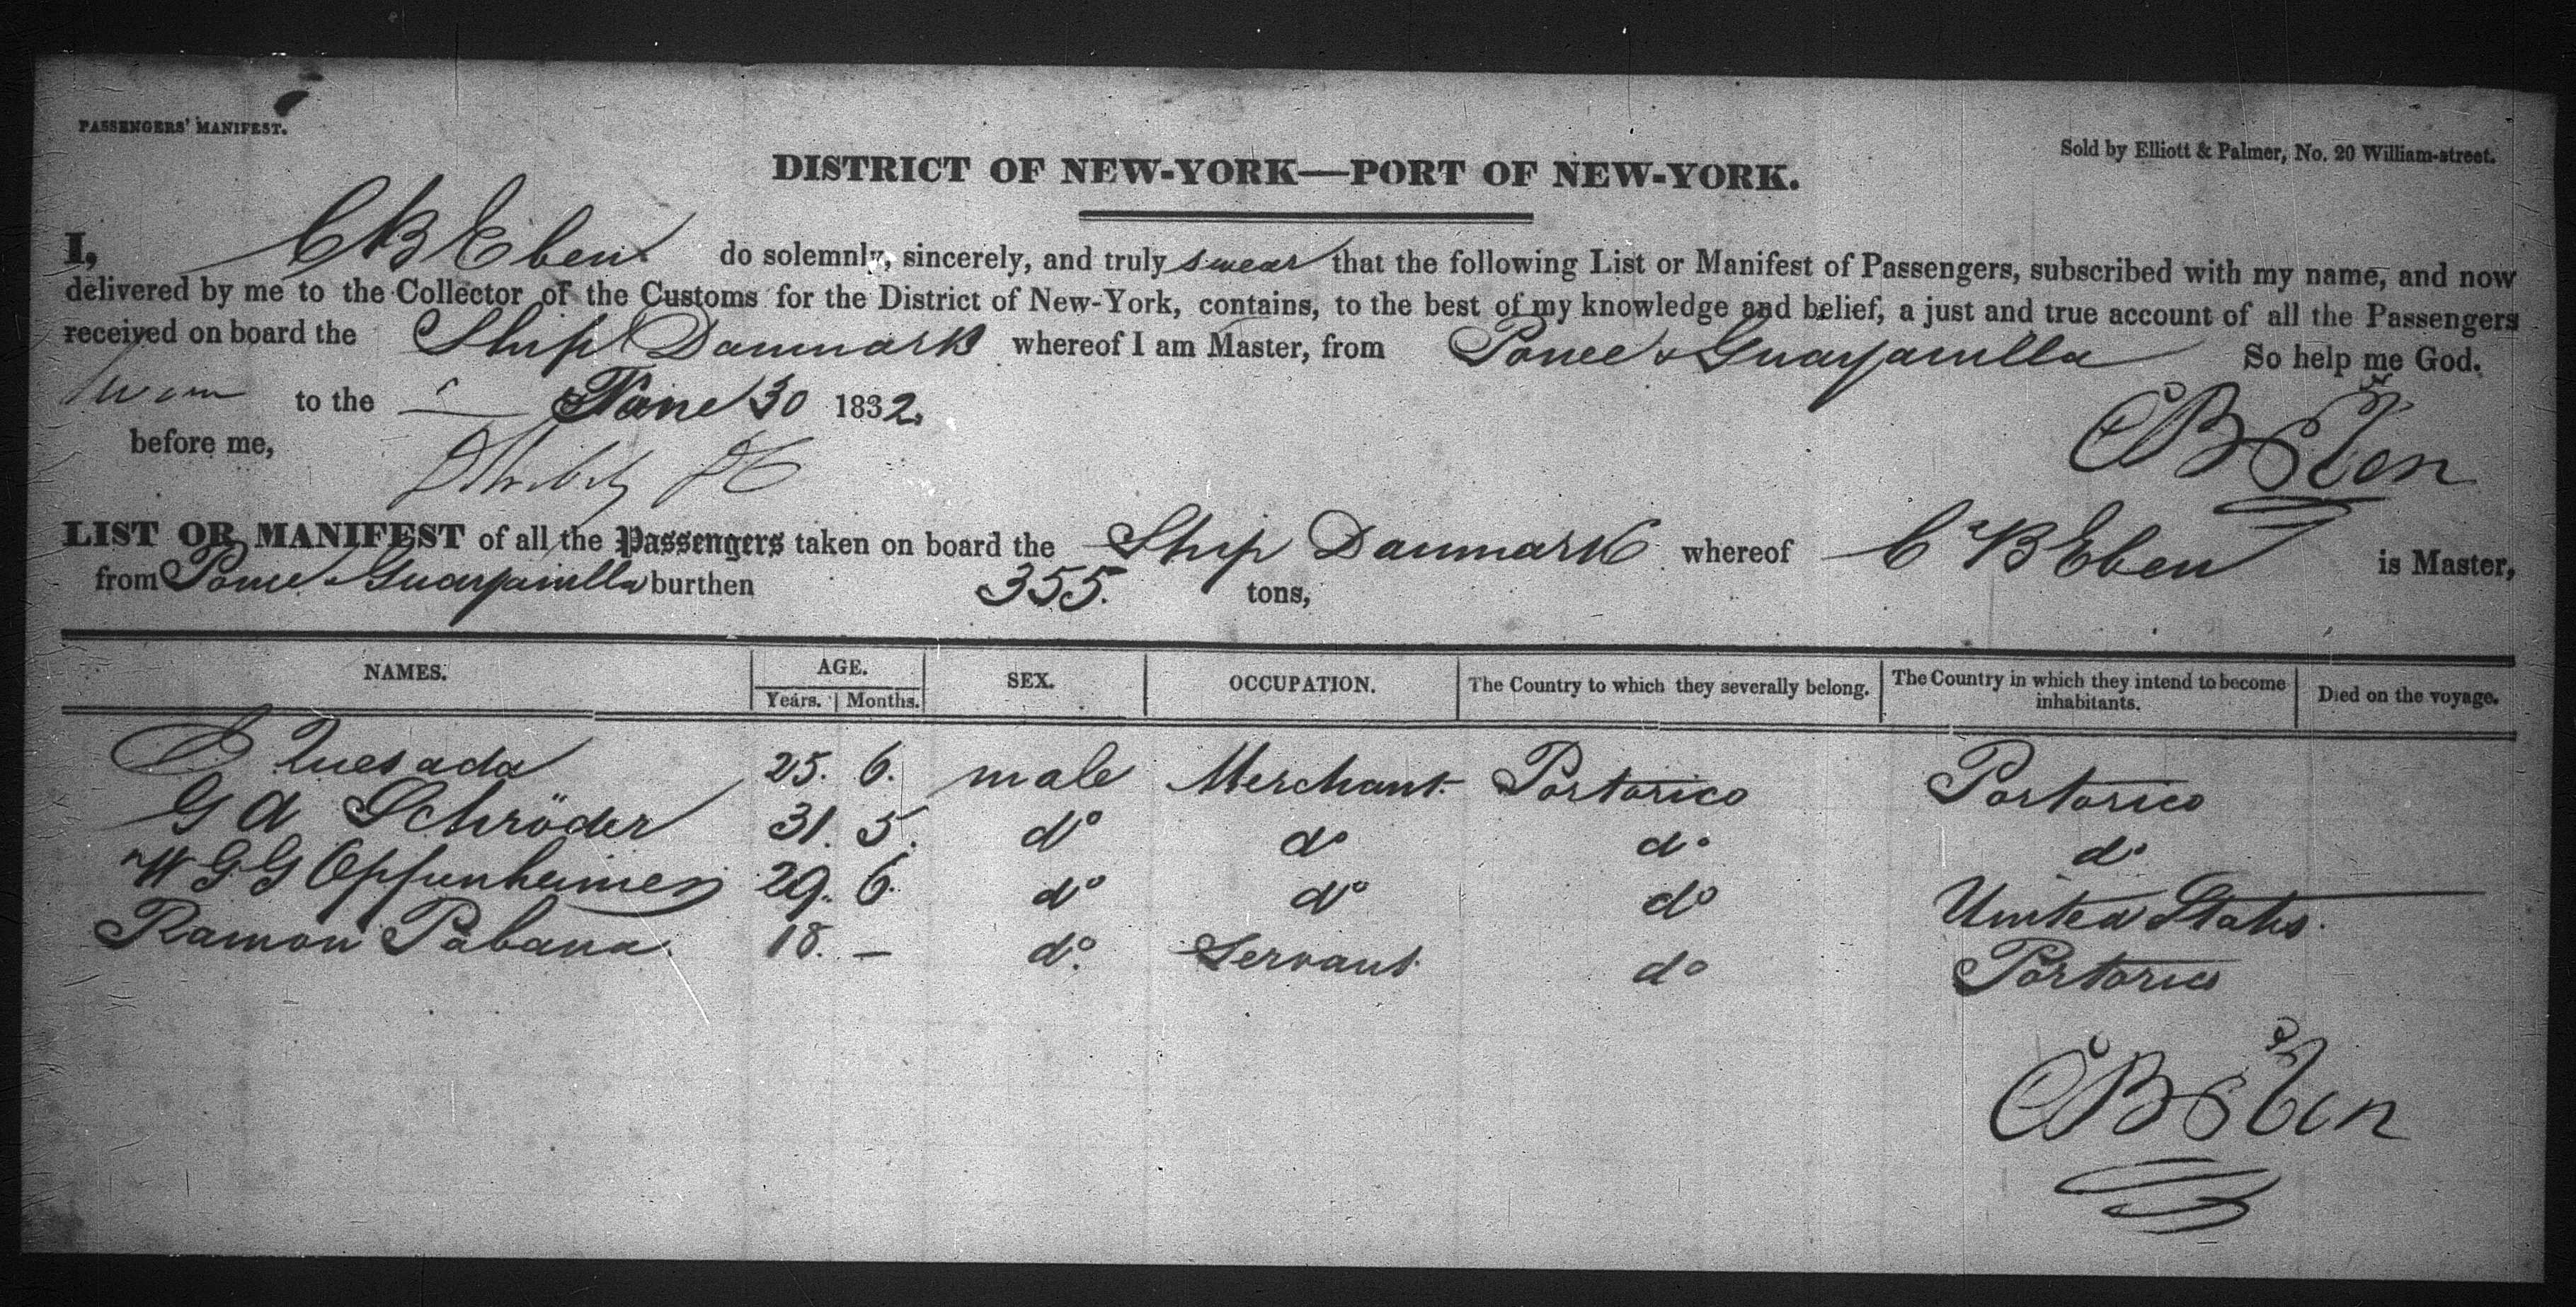 PASSENGERS' MANIFEST.
Sold by Elliott & Palmer, No. 20 William-street.
DISTRICT OF NEW-YORK—PORT OF NEW-YORK.
I, C B Eben do solemnly, sincerely, and truly swear that the following List or Manifest of Passengers, subscribed with my name, and now
delivered by me to the Collector of the Customs for the District of New-York, contains, to the best of my knowledge and belief, a just and true account of all the Passengers
received on board the Ship Danmark whereof I am Master, from Ponce & Guayanilla So help me God.
to the June 30 1832.
before me,
C B Eben
LIST OR MANIFEST of all the Passengers taken on board the Ship Danmark whereof C B Eben is Master,
from Ponce & Guayanilla burthen 355. tons,
NAMES. AGE. SEX. OCCUPATION. The Country to which they severally belong. The Country in which they intend to become inhabitants. Died on the voyage.
Years. Months.
Quesada 25. 6. male Merchant Portorico Portorico
G A Schröder 31. 5. do do do do
W G G Oppenheimer 29. 6. do do do United States.
Ramon Pabana. 18. — do. Servant do Portorico
C B Eben